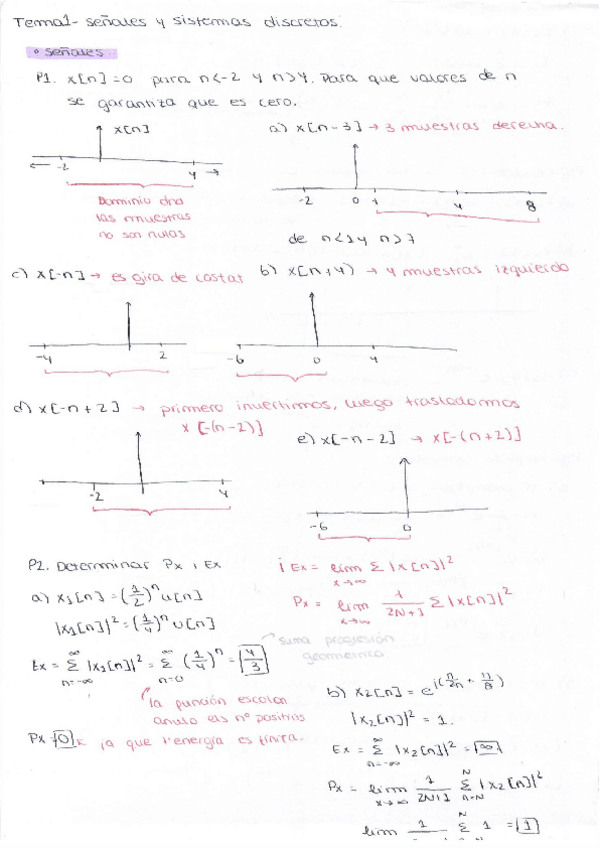 Tema 1 - señales y sistemas discretos.
• señales
P1. x[n] = 0 para n<-2 y n>4. Para que valores de n
se garantiza que es cero.
x[n]
-2 4
Dominio dnd
las muestras
no son nulas
a) x[n-3] → 3 muestras derecha.
-2 0 1 4 8
de n<1 y n>7
c) x[-n] → es gira de costat
-4 2
b) x[n+4) → 4 muestras izquierda
-6 0 4
d) x[-n+2] → primero invertimos, luego trasladamos
x[-(n-2)]
-2 4
e) x[-n-2] → x[-(n+2)]
-6 0
P2. Determinar Px i Ex
i Ex = lim x→∞ Σ |x[n]|²
Px = lim x→∞ 1/2N+1 Σ |x[n]|²
a) x₁[n] = (1/2)ⁿ u[n]
|x₁[n]|² = (1/4)ⁿ u[n]
suma progresión
geométrica.
Ex = Σ n=-∞ ∞ |x₁[n]|² = Σ n=0 ∞ (1/4)ⁿ = 4/3
la función escalon
anula els nº positivs
Px = 0 ja que l'energia es finita.
b) x₂[n] = e
|x₂[n]|² = 1.
Ex = Σ n=-∞ ∞ |x₂[n]|² = ∞
Px = lim x→∞ 1/2N+1 Σ n=-N N |x₂[n]|²
lim 1 Σ N 1 = 1